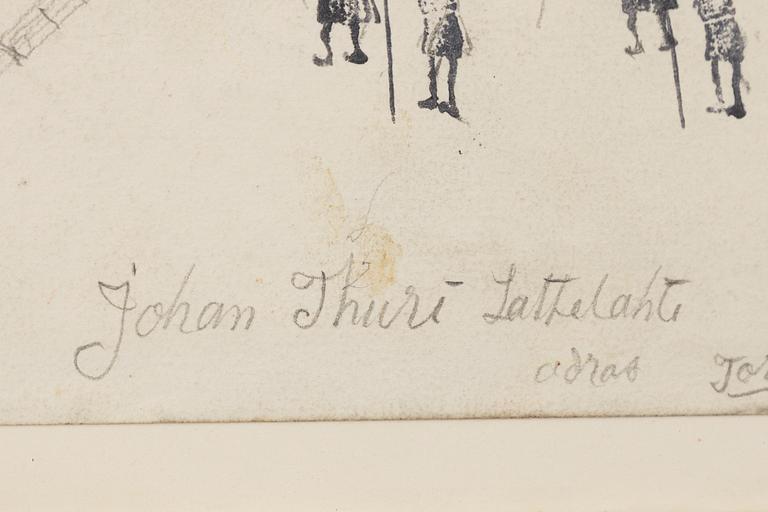 Johan Thuri Lattilahti
adras Tor